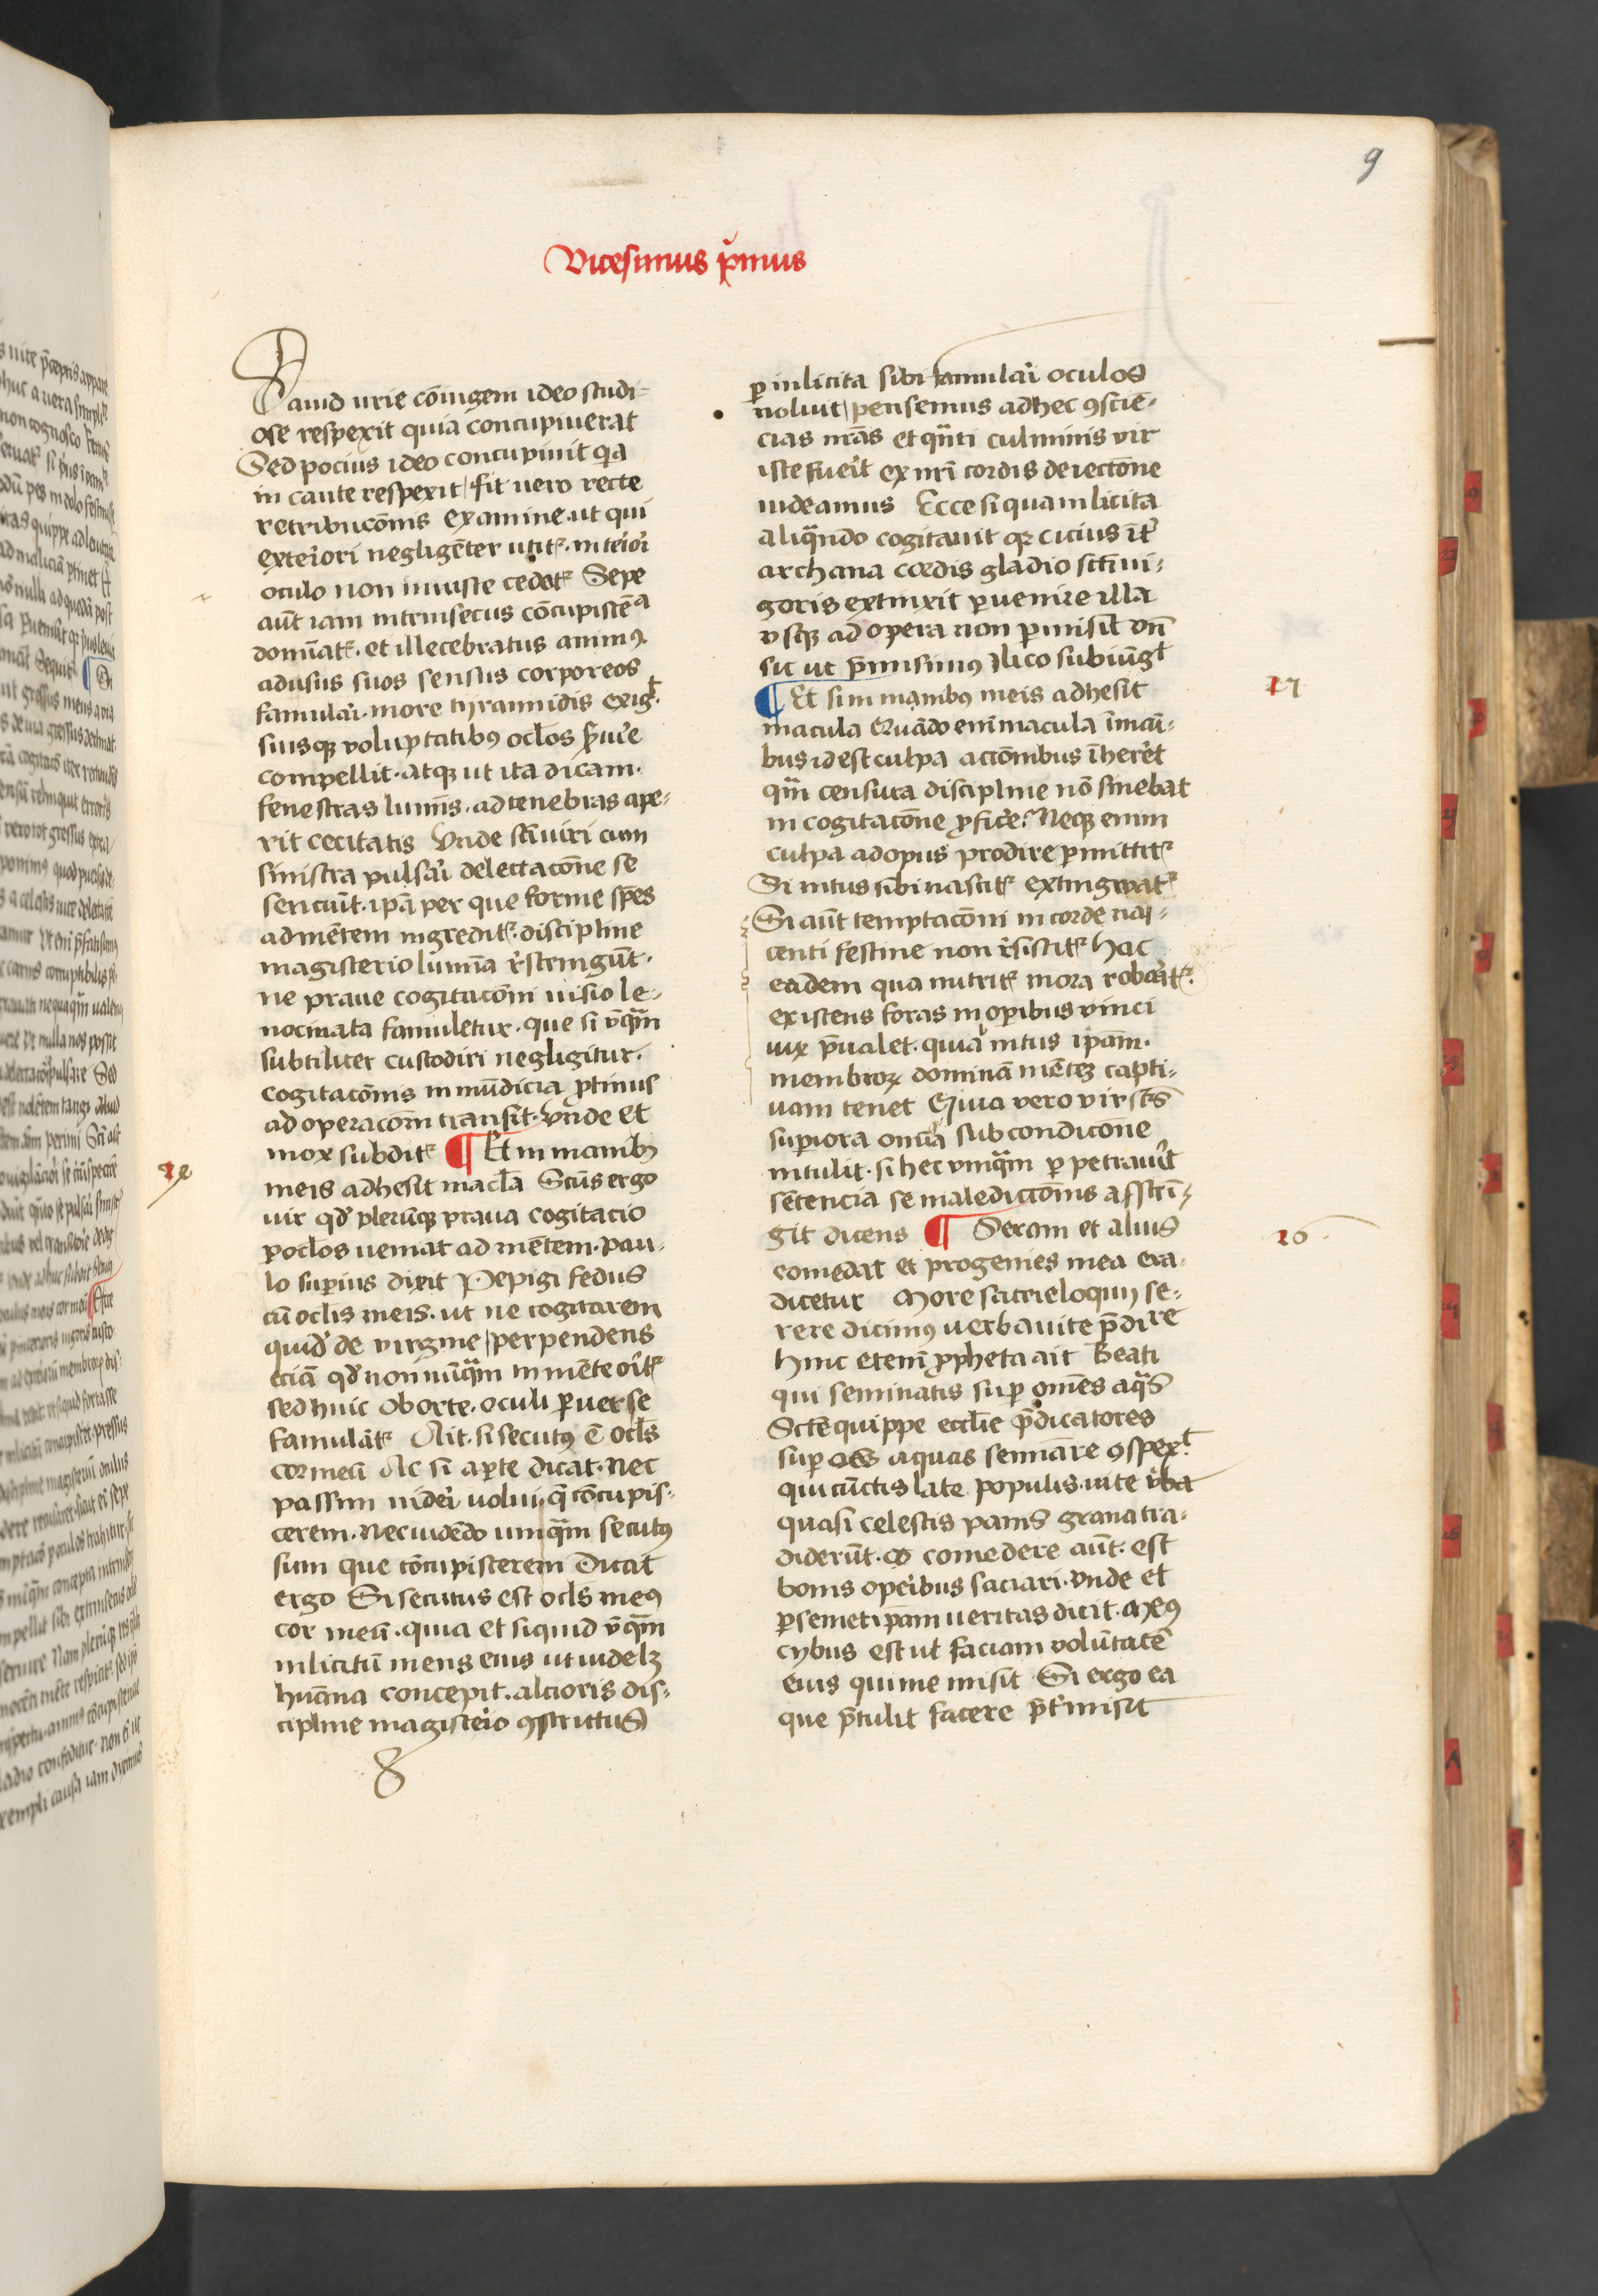 9
Vicesimus p̄mus
Dauid urie cōiugem ideo studi-
ose respexit quia concupiuerat
Sed pocius ideo concupiuit q̄a
in caute respexit / fit uero recte
retribucōnis examine. ut qui
exteriori negligēter utit᷑. interiori
oculo non iniuste cedat᷑ Sepe
aūt iam intrinsecus cōcupiscēᵃ
domināt᷑. et illecebratus animꝰ
ad usus suos sensus corporeos
famulari. more tyrannidis exigᵗ.
suisqꝫ voluptatibꝰ oclos s̄uire
compellit. atqꝫ ut ita dicam.
fenestras luminis. ad tenebras ape-
rit cecitatis Vnde sc̄i uiri cum
sinistra pulsari delectacōne se
senciūt. ip̄a per que forme sp̄es
ad mētem ingredit᷑. discipline
magisterio lumīa r̄stringūt.
ne praue cogitacōni uisio le-
nocinata famuletur. que si v̄q̄m
subtiliter custodiri negligitur.
cogitacōnis inmūdicia ꝓtinus
ad operacōm transit. vnde et
mox subdit᷑ ¶ Et in manibꝫ
meis adhesit macl̄a Scūs ergo
uir qd̄ plerūqꝫ praua cogitacio
ꝑ oclos ueniat ad mētem. pau-
lo suꝑius dixit Pepigi fedus
cū oclis meis. ut ne cogitarem
quid̄ de virgine / perpendens
eciā qd̄ nonnūq̄m in mēte orit᷑
sed huic oborte. oculi ꝑuerse
famulāt᷑ Ait. si secutꝰ ē ocl̄s
cor meū Ac si aꝑte dicat. nec
passim uideri uolui. q̄ cōcupis-
cerem. nec uidēdo umq̄m secutꝰ
sum que cōcupiscerem Dicat
ergo Si secutus est ocl̄s meꝰ
cor meū. quia et siquid v̄q̄m
inlicitū mens eius ut uidelꝫ
humana concepit. alcioris dis-
cipline magisterio ꝯstrictus
ꝑ inlicita sibi famulari oculos
noluit / pensemus ad hec ꝯscie-
cias nr̄as et q̄nti culminis vir
iste fuerit ex nr̄i cordis deiectōne
uideamus Ecce si qua inlicita
aliq̄ndo cogitauit qꝛ cicius īt᷑
archana cordis gladio sc̄i ui-
goris extinxit ꝑuenire illa
vsqꝫ ad opera non ꝑmisit vn̄
sic ut p̄misimꝰ ilico subiūgᵗ
¶ Et si in manibꝰ meis adhesit
macula Quādo enī macula ī mai-
bus id est culpa actōnibus īheret
q̄m censura discipline nō sinebat
in cogitacōne ꝓficere. Neqꝫ enim
culpa ad opus prodire ꝑmittit᷑
Si intus sibi nascit᷑ extingwat᷑
Si aūt temptacōni in corde nas-
centi festine non r̄sistit᷑ hac
eadem qua nutrit᷑ mora roborat᷑.
existens foras in oꝑibus vinci
uix p̄ualet. quia intus ip̄am.
membroꝝ dominā mētem capti-
uam tenet Quia vero vir sc̄s
suꝑiora om̄a sub condicōne
intulit. si hec vmq̄m ꝑpetrauit
sētencia se maledictōnis asstrī-
git dicens ¶ Seram et alius
comedat et progenies mea era-
dicetur More sacri eloquij se-
rere dicimꝰ uerba uite p̄dire
hinc etenī ꝓpheta ait Beati
qui seminatis suꝑ om̄es aq̄s
Sctē quippe eccl̄ie p̄dicatores
suꝑ oēs aquas semīare ꝯspexᵗ
qui cūctis late populis. uite v̄ba
quasi celestis panis grana tra-
diderūt. co comedere aūt. est
bonis operibus saciari. vnde et
ꝑ semetip̄am ueritas dicit. Meꝰ
cybus est ut faciam volūtatē
eius qui me misit Si ergo ea
que p̄tulit facere p̄t᷑misit
27
26